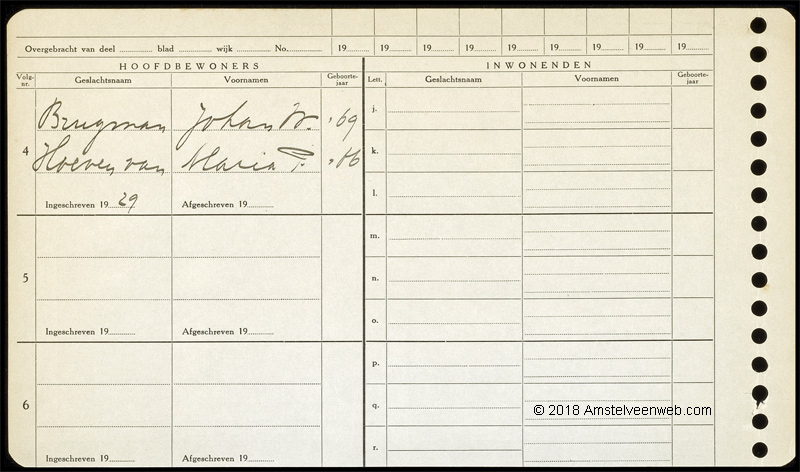 Overgebracht van deel ............ blad ............ wijk ............ No............ 19........ 19........ 19........ 19........ 19........ 19........ 19........ 19........ 19........
HOOFDBEWONERS
INWONENDEN
Volg-
nr.
Geslachtsnaam
Voornamen
Geboorte-
jaar
Lett.
Geslachtsnaam
Voornamen
Geboorte-
jaar
4
Brugman Johan W. '69
Hoeven van Maria P.
Ingeschreven 1929
Afgeschreven 19........
5
Ingeschreven 19........
Afgeschreven 19........
6
Ingeschreven 19........
Afgeschreven 19........
j.
k.
l.
m.
n.
o.
p.
q.
r.
© 2018 Amstelveenweb.com